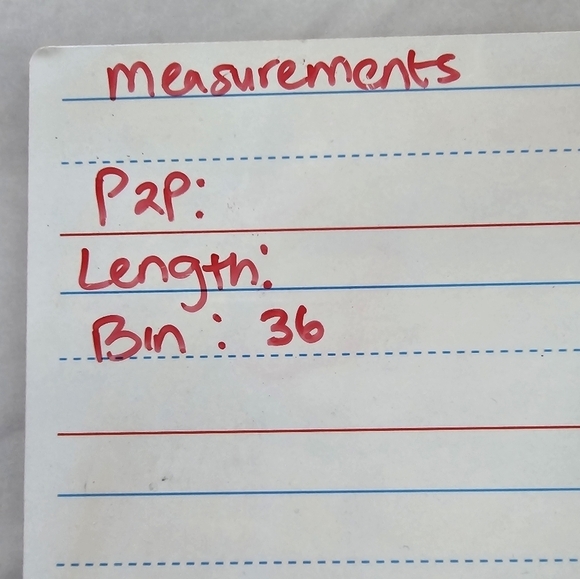 Measurements
P2P:
Length:
Bin: 36